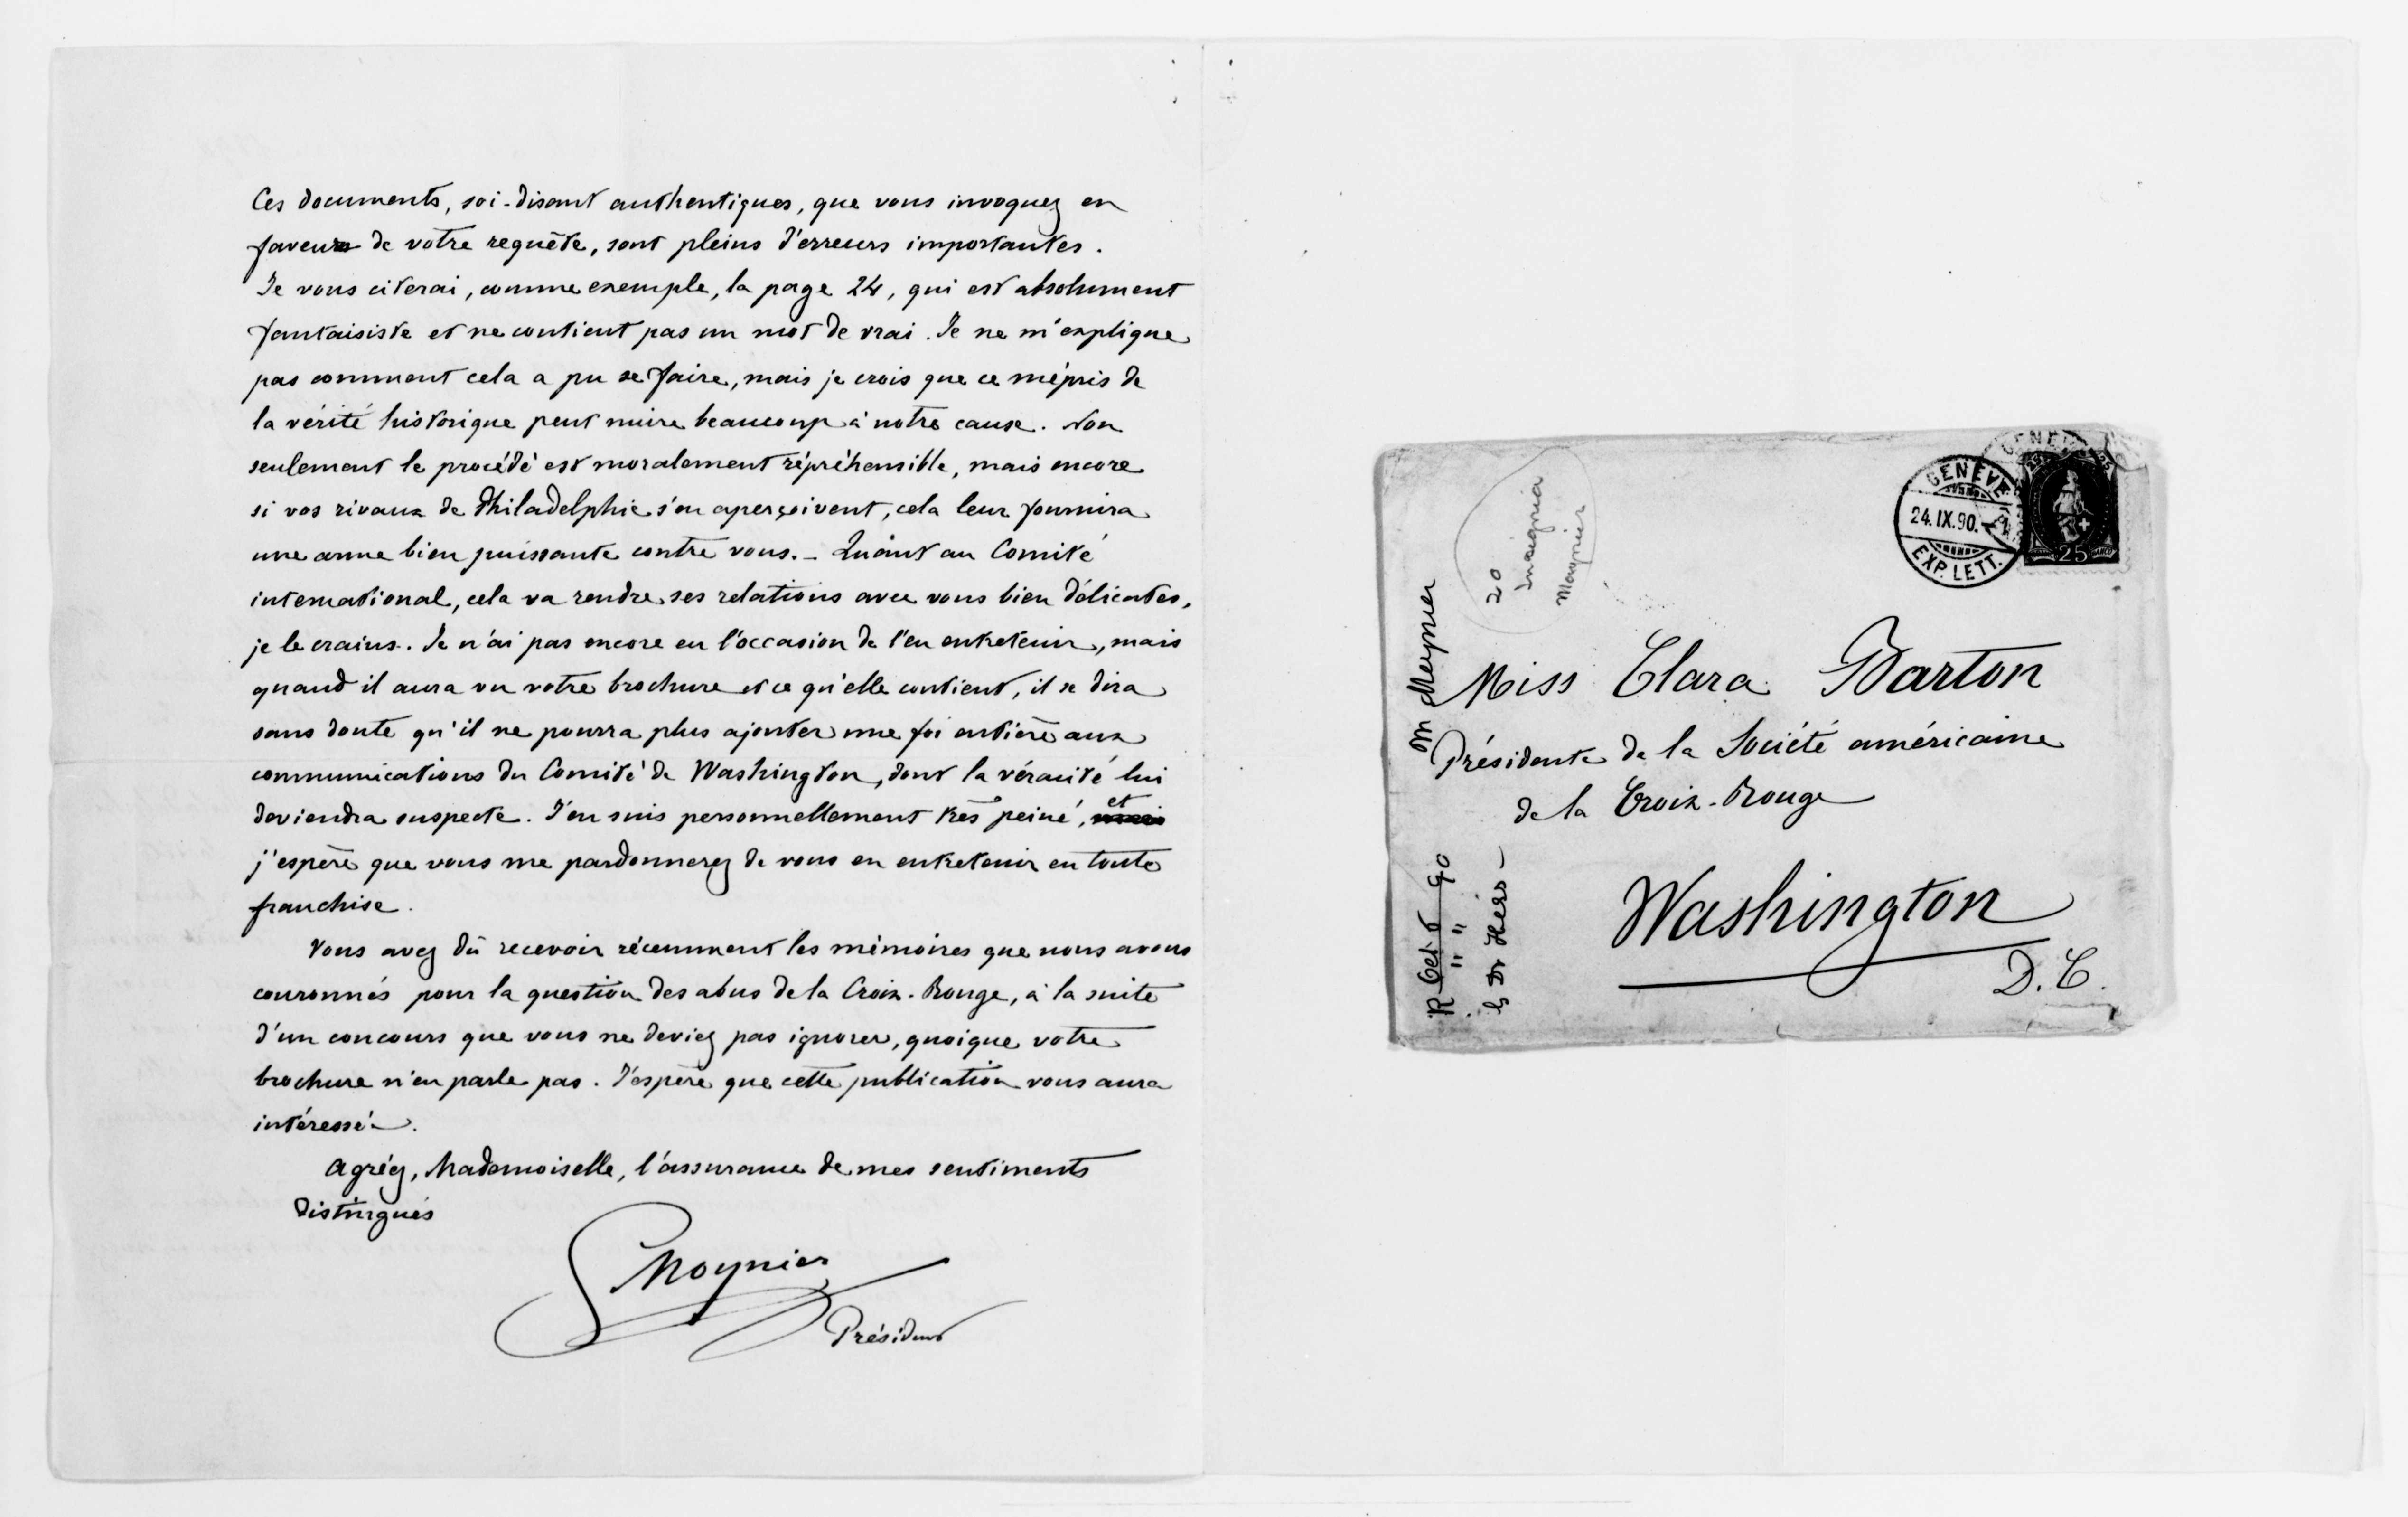 Ces documents, soi-disant authentiques, que vous invoquez en
faveur de votre requête, sont pleins d'erreurs importantes.
Je vous citerai, comme exemple, la page 24, qui est absolument
fantaisiste et ne contient pas un mot de vrai. Je ne m'explique
pas comment cela a pu se faire, mais je crois que ce mépris de
la vérité historique peut nuire beaucoup à notre cause. Non
seulement le procédé est moralement répréhensible, mais encore
si vos rivaux de Philadelphie s'en aperçoivent, cela leur fournira
une arme bien puissante contre vous. – Quant au Comité
international, cela va rendre ses relations avec vous bien délicates,
je le crains. Je n'ai pas encore eu l'occasion de l'en entretenir, mais
quand il aura vu votre brochure et ce qu'elle contient, il se dira
sans doute qu'il ne pourra plus ajouter une foi entière aux
communications du Comité de Washington, dont la véracité lui
deviendra suspecte. J'en suis personnellement très peiné, et
j'espère que vous me pardonnerez de vous en entretenir en toute
franchise.
Vous avez dû recevoir récemment les mémoires que nous avons
couronnés pour la question des abus de la Croix-Rouge, à la suite
d'un concours que vous ne deviez pas ignorer, quoique votre
brochure n'en parle pas. J'espère que cette publication vous aura
intéressé.
Agréez, Mademoiselle, l'assurance de mes sentiments
distingués
G Moynier
Président
GENÈVE
24.IX.90.
EXP. LETT.
25
20
Insignia
Moynier
Miss Clara Barton
Présidente de la Société américaine
de la Croix-Rouge
Washington
D.C.
M Moynier
R Oct 6 90
" "
Dr Hers –